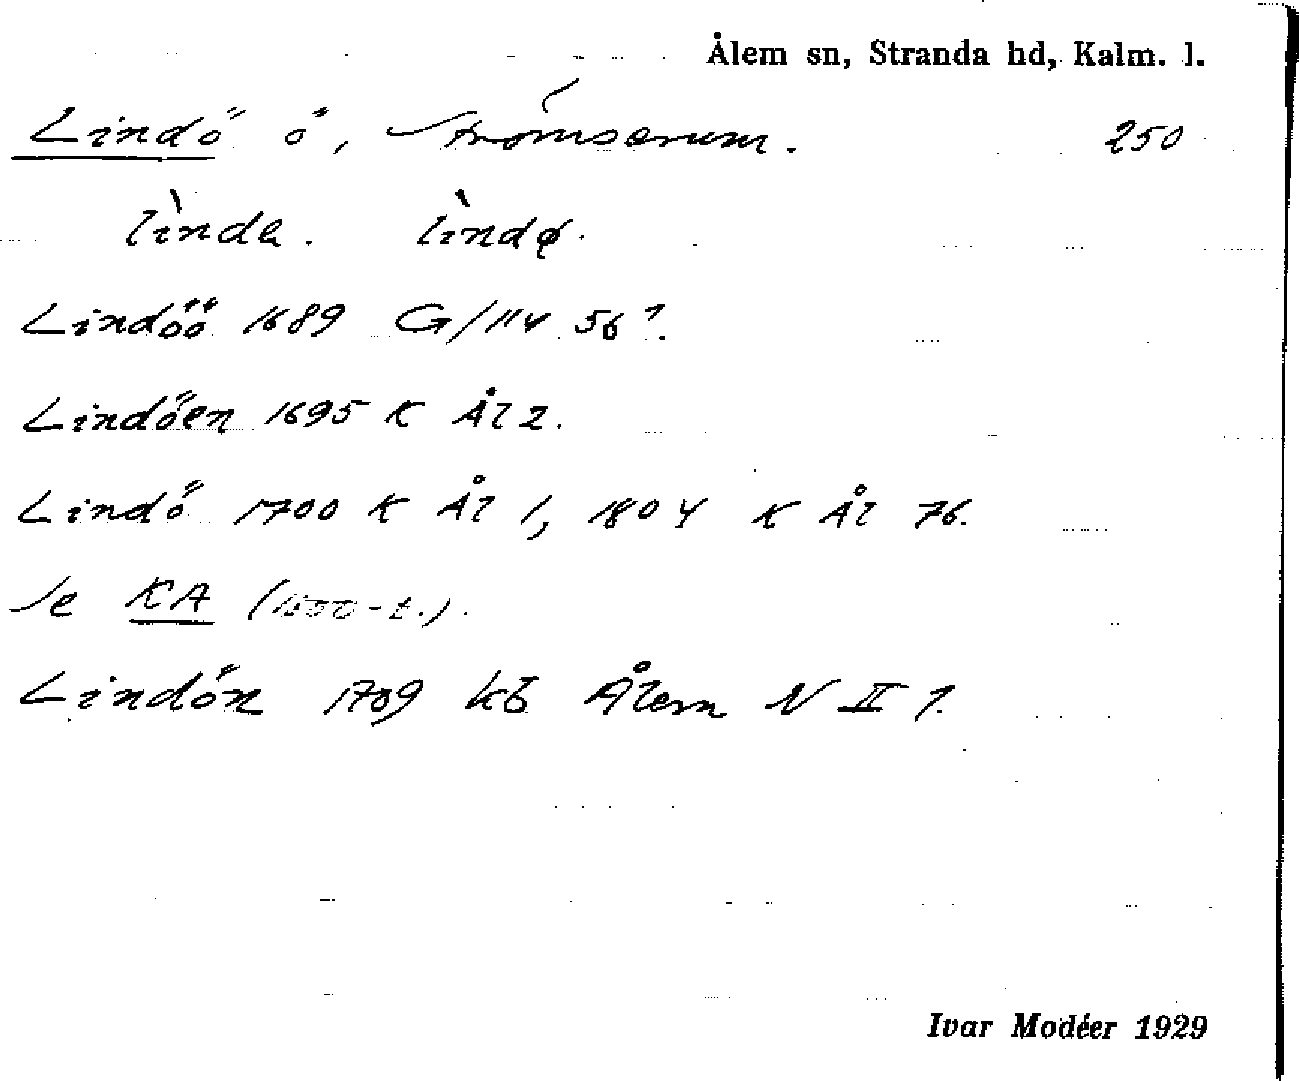 Ålem sn, Stranda hd, Kalm. l.
Lindö ö, Strömserum. 250
lìnda. lìndø.
Lindöö 1689 G/114 56¹.
Lindöen 1695 K Ål 2.
Lindö 1700 K Ål 1, 1804 K Ål 76.
Se KA (1500-t.).
Lindön 1709 kb Ålem N II 1.
Ivar Modéer 1929